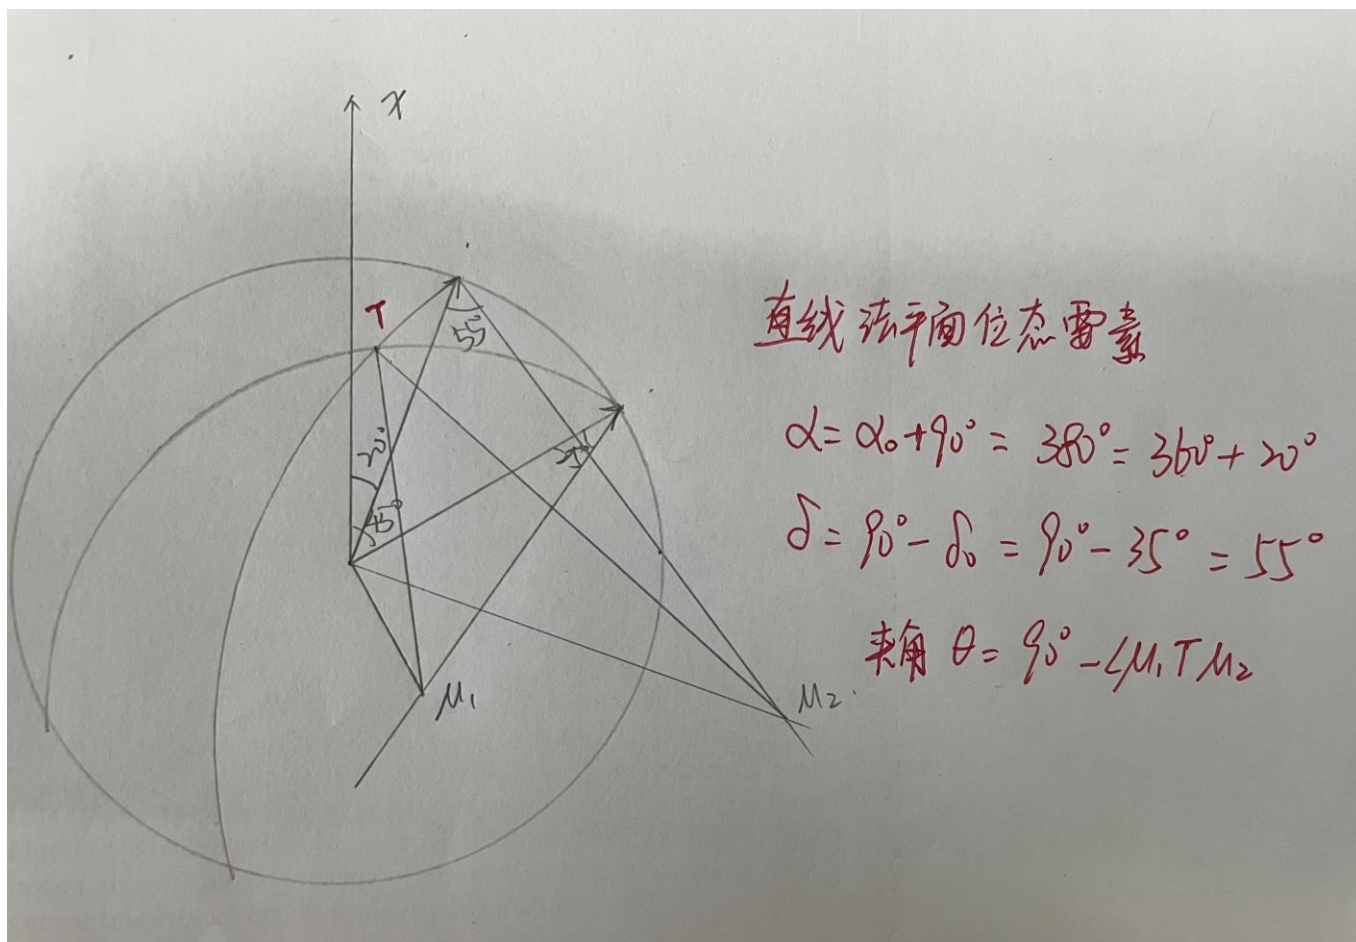 x
T
55°
20°
45°
M₁
M₂
直线法平面位态要素
α = α₀ + 90° = 380° = 360° + 20°
δ = 90° - δ₀ = 90° - 35° = 55°
夹角 θ = 90° - ∠M₁TM₂